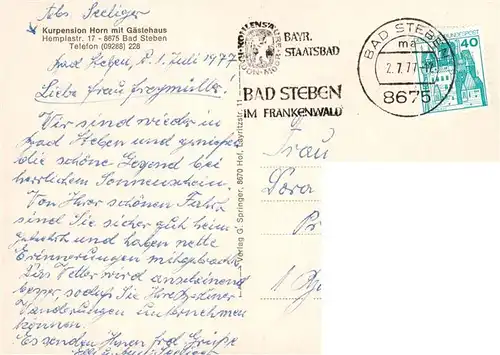 Abs. Seeliger
Kurpension Horn mit Gästehaus
Hemplastr. 17 - 8675 Bad Steben
Telefon (09288) 228
Bad Steben, d. 1. Juli 1977
Liebe Frau
Wir sind wieder in
Bad Steben und genießen
die schöne Gegend bei
herrlichem Sonnenschein.
Von Ihrer schönen Fahrt
sind Sie sicher gut heim-
gekehrt und haben nette
Erinnerungen mitgebracht.
Das Wetter wird anscheinend
besser, sodaß Sie Ihre
Wanderungen unternehmen
können.
Es senden Ihnen frdl. Grüße
Verlag G. Springer, 8670 Hof, Layritzstr. 11
BAYR.
STAATSBAD
BAD STEBEN
IM FRANKENWALD
BAD STEBEN
ma
2.7.77
8675
40
Frau